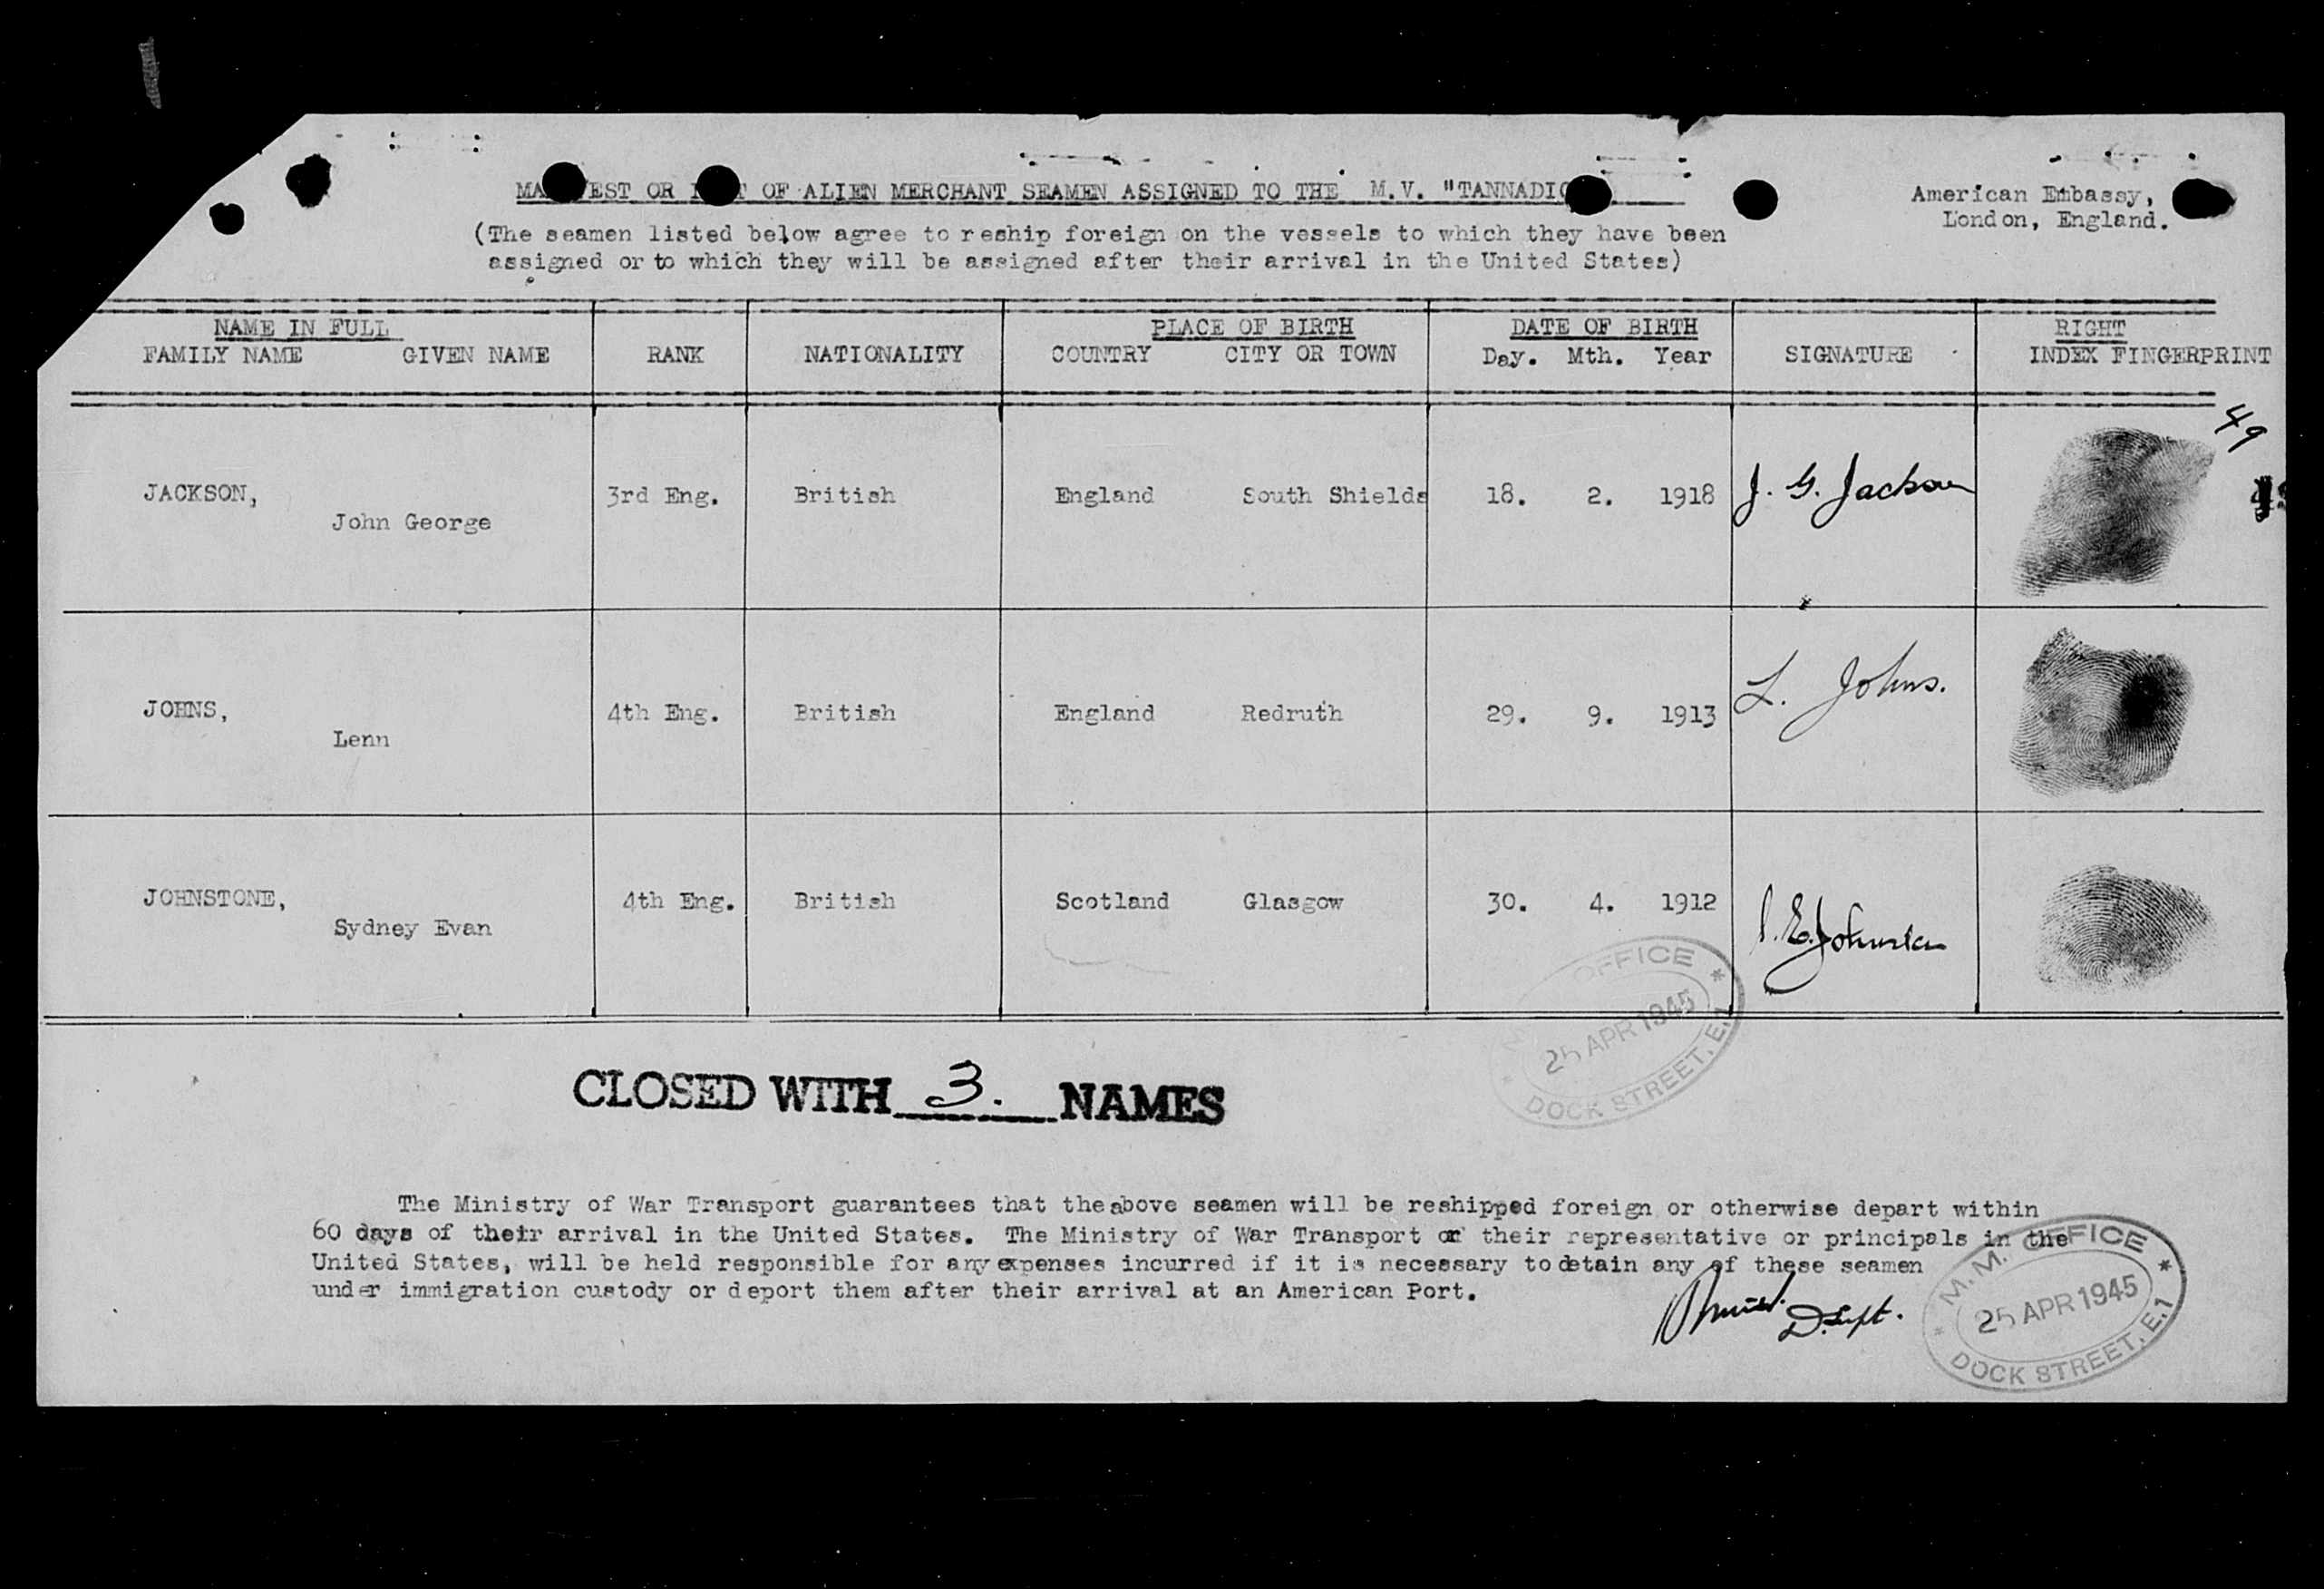 MA EST OR OF ALIEN MERCHANT SEAMEN ASSIGNED TO THE M.V. "TANNADIC
American Embassy,
London, England.
(The seamen listed below agree to reship foreign on the vessels to which they have been
assigned or to which they will be assigned after their arrival in the United States)
NAME IN FULL PLACE OF BIRTH DATE OF BIRTH RIGHT
FAMILY NAME GIVEN NAME RANK NATIONALITY COUNTRY CITY OR TOWN Day. Mth. Year SIGNATURE INDEX FINGERPRINT
49
JACKSON, 3rd Eng. British England South Shields 18. 2. 1918 J. G. Jackson
John George
JOHNS, 4th Eng. British England Redruth 29. 9. 1913 L. Johns.
Lenn
JOHNSTONE, 4th Eng. British Scotland Glasgow 30. 4. 1912 S.E. Johnstone
Sydney Evan
OFFICE
25 APR 1945
DOCK STREET, E.1
CLOSED WITH 3. NAMES
The Ministry of War Transport guarantees that the above seamen will be reshipped foreign or otherwise depart within
60 days of their arrival in the United States. The Ministry of War Transport or their representative or principals in the
United States, will be held responsible for any expenses incurred if it is necessary to detain any of these seamen
under immigration custody or deport them after their arrival at an American Port.
D.Supt.
M.M. OFFICE
25 APR 1945
DOCK STREET, E.1